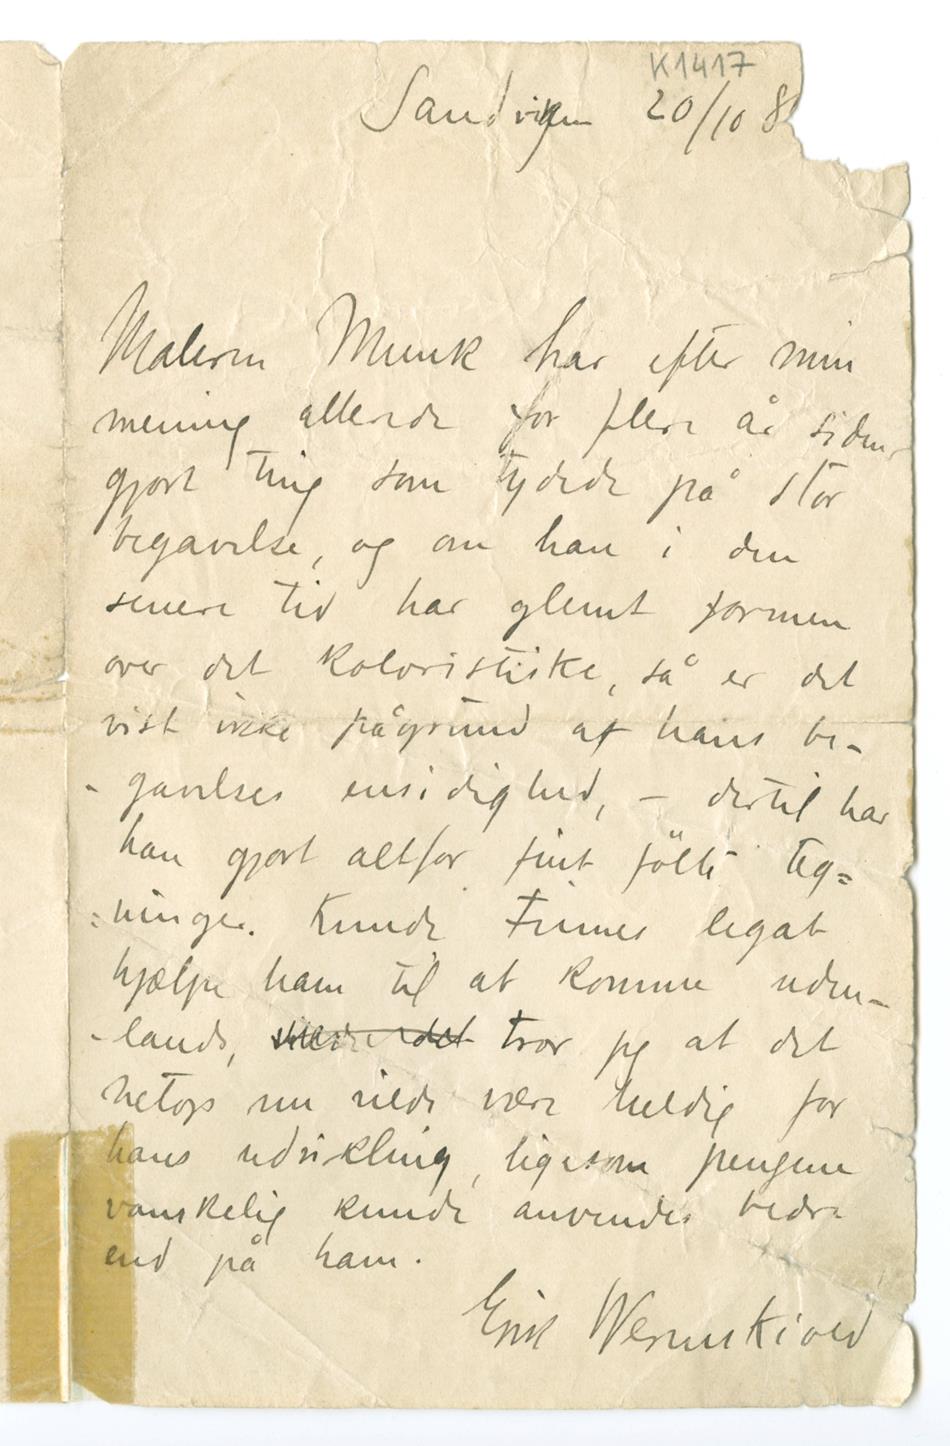 K1417
Sandviken 20/10 8
Maleren Munk har efter min
mening allerede for flere år siden
gjort ting som tydede på stor
begavelse, og om han i den
senere tid har glemt formen
over det koloristiske, så er det
vist ikke pågrund af hans be-
- gavelses ensidighed, – dertil har
han gjort altfor fint fölte teg=
=ninger. Kunde Finnes legat
hjælpe ham til at komme uden-
-lands, vilde det tror jeg at det
netop nu vilde være heldig for
hans udvikling, ligesom pengene
vanskelig kunde anvendes bedre
end på ham.
Erik Werenskiold